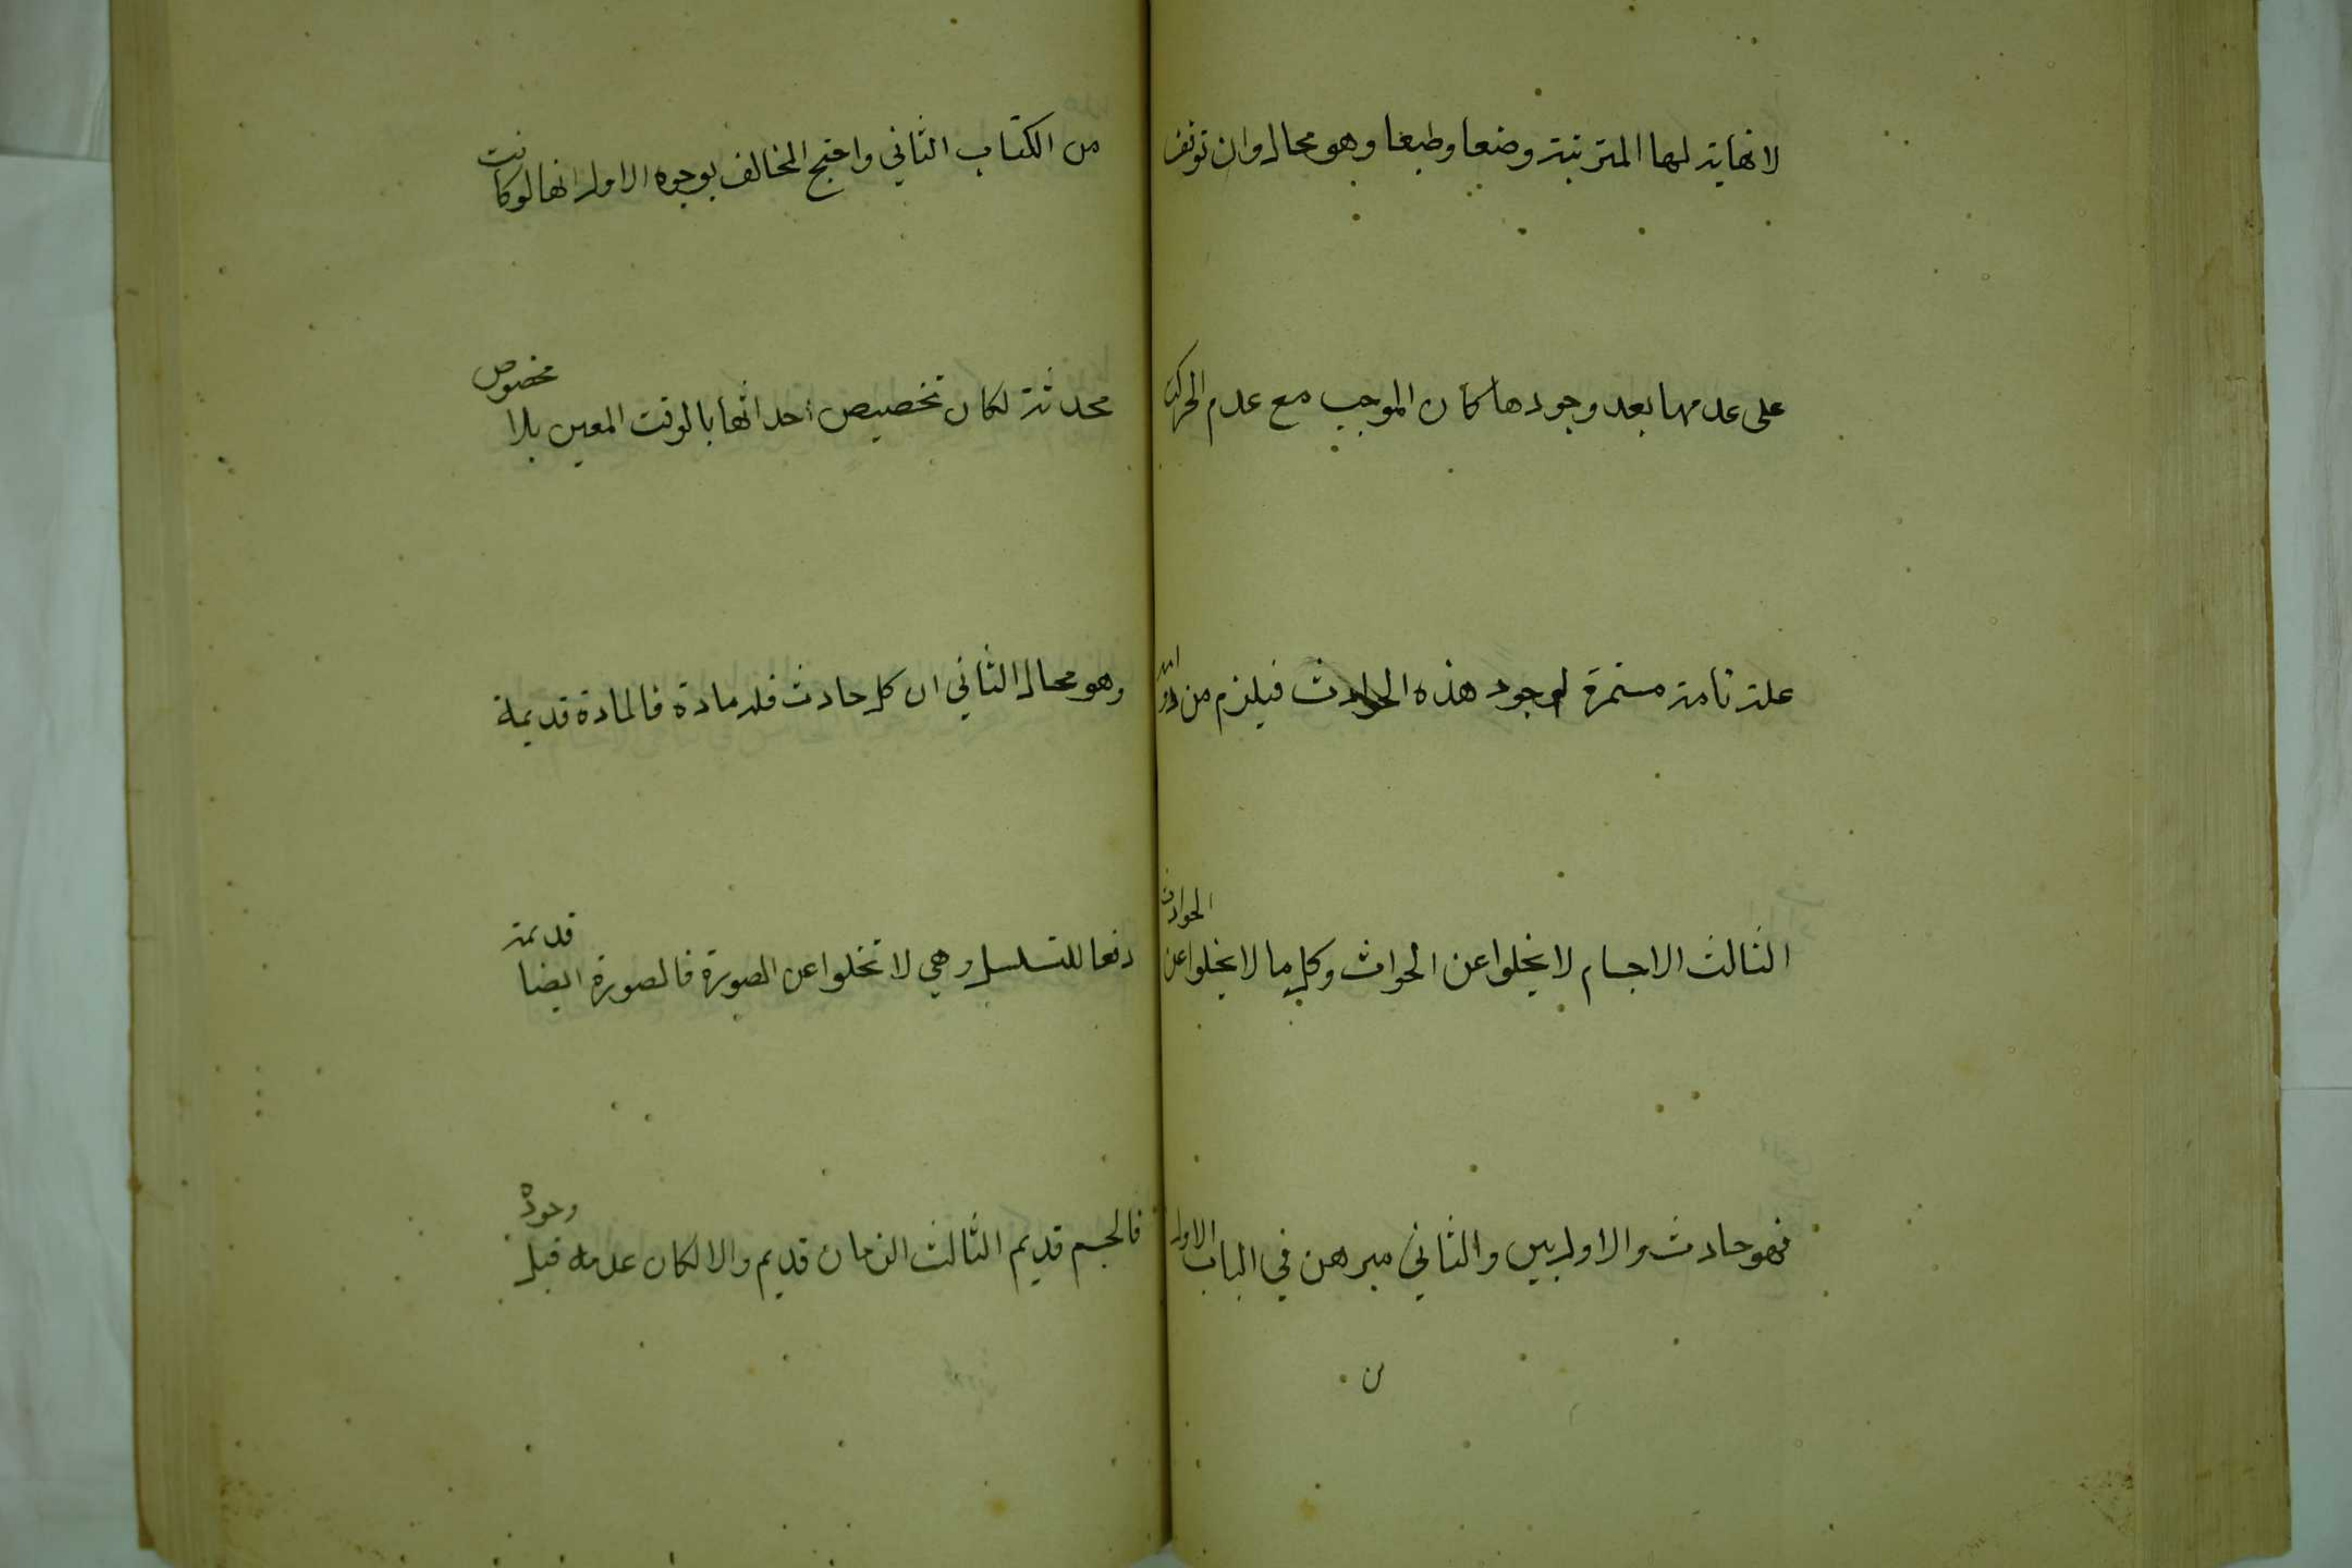 لا نهاية لها المترتبة وضعا وطبعا وهو محال وان توقف
على عدمها بعد وجودها كان الموجب مع عدم الحركة
علة تامة مستمرة لوجود هذه الحوادث فيلزم من
الثالث الاجسام لا يخلوا عن الحواث وكل ما لا يخلوا عن الحوادث
فهو حادث والاول بين والثاني مبرهن في الباب الاول
من
من الكتاب الثاني واحتج المخالف بوجوه الاول انها لو كانت
محدثة لكان تخصيص احداثها بالوقت المعين بلا مخصوص
وهو محال الثاني ان كل حادث فله مادة فالمادة قديمة
دفعا للتسلسل وهي لا تخلوا عن الصورة فالصورة ايضا قديمة
فالجسم قديم الثالث الزمان قديم والا لكان عدمه قبل وجوده